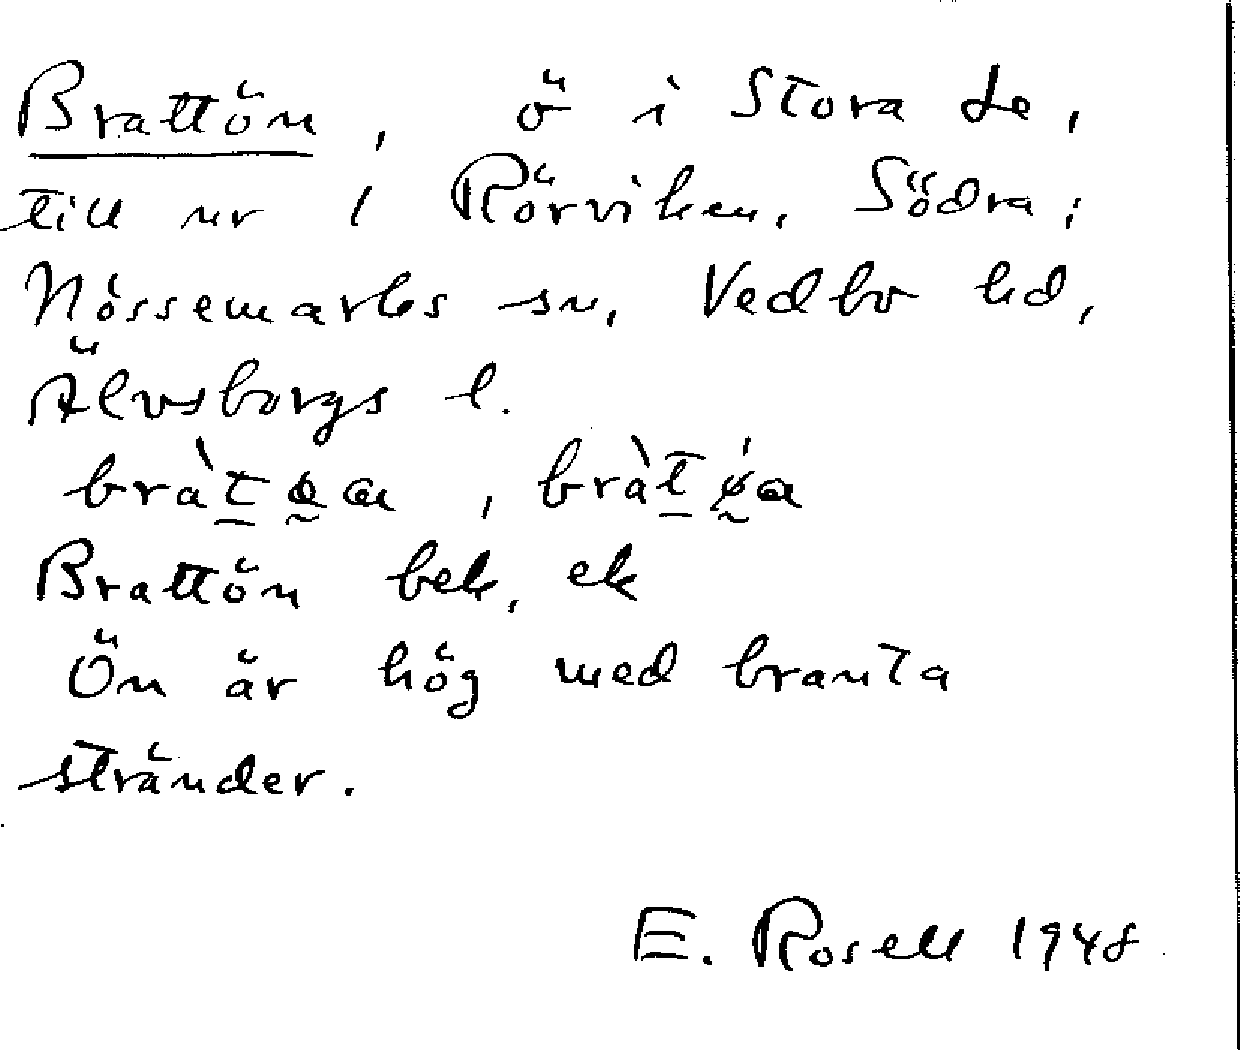 Brattön, ö i Stora Le,
till nr 1 Rörviken, Södra;
Nössemarks sn, Vedbo hd,
Älvsborgs l.
Brattön bek, ek
Ön är hög med branta
stränder.
E. Rosell 1948